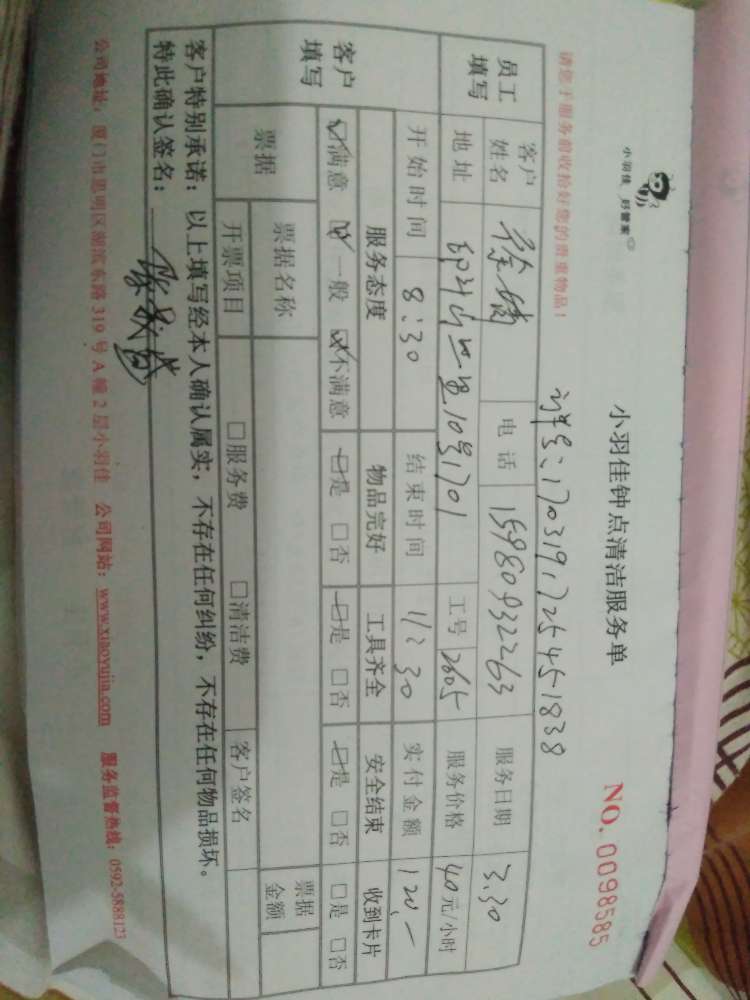 小羽佳 好管家
小羽佳钟点清洁服务单
NO. 0098585
请您于服务前收拾好您的贵重物品！
单号：1703191725451838
员工填写
客户姓名 徐 电话 15980932263 服务日期 3.30
地址 10号1701 工号 2605 服务价格 40元/小时
开始时间 8：30 结束时间 11：30 实付金额 120.—
客户填写
服务态度 物品完好 工具齐全 安全结束 收到卡片
☑满意 ☑一般 ☑不满意 ☑是 □否 ☑是 □否 ☑是 □否 □是 □否
票据 票据名称 票据金额
开票项目 □服务费 □清洁费 客户签名
客户特别承诺：以上填写经本人确认属实，不存在任何纠纷，不存在任何物品损坏。
特此确认签名：
公司地址：厦门市思明区湖滨东路319号A幢2层小羽佳 公司网站：www.xiaoyujia.com 服务监督热线：0592-5888123